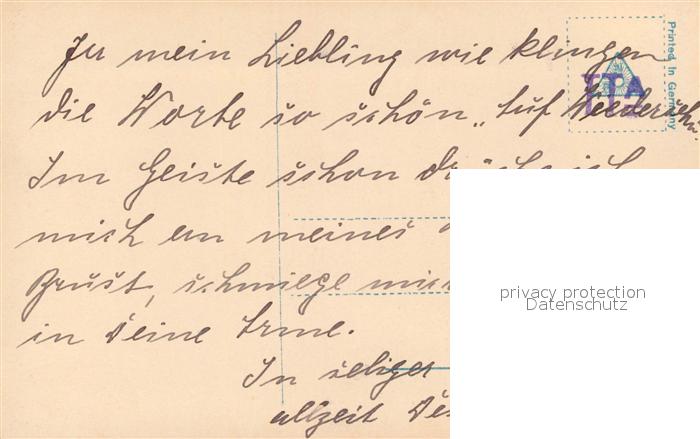 Ja mein Liebling wie klingen
die Worte so schön „Auf Wiederseh
Im Geiste schon drücke ich
mich an meines
Brust, schmiege mich
in Deine Arme.
In seliger
allzeit
Printed in Germany
privacy protection
Datenschutz